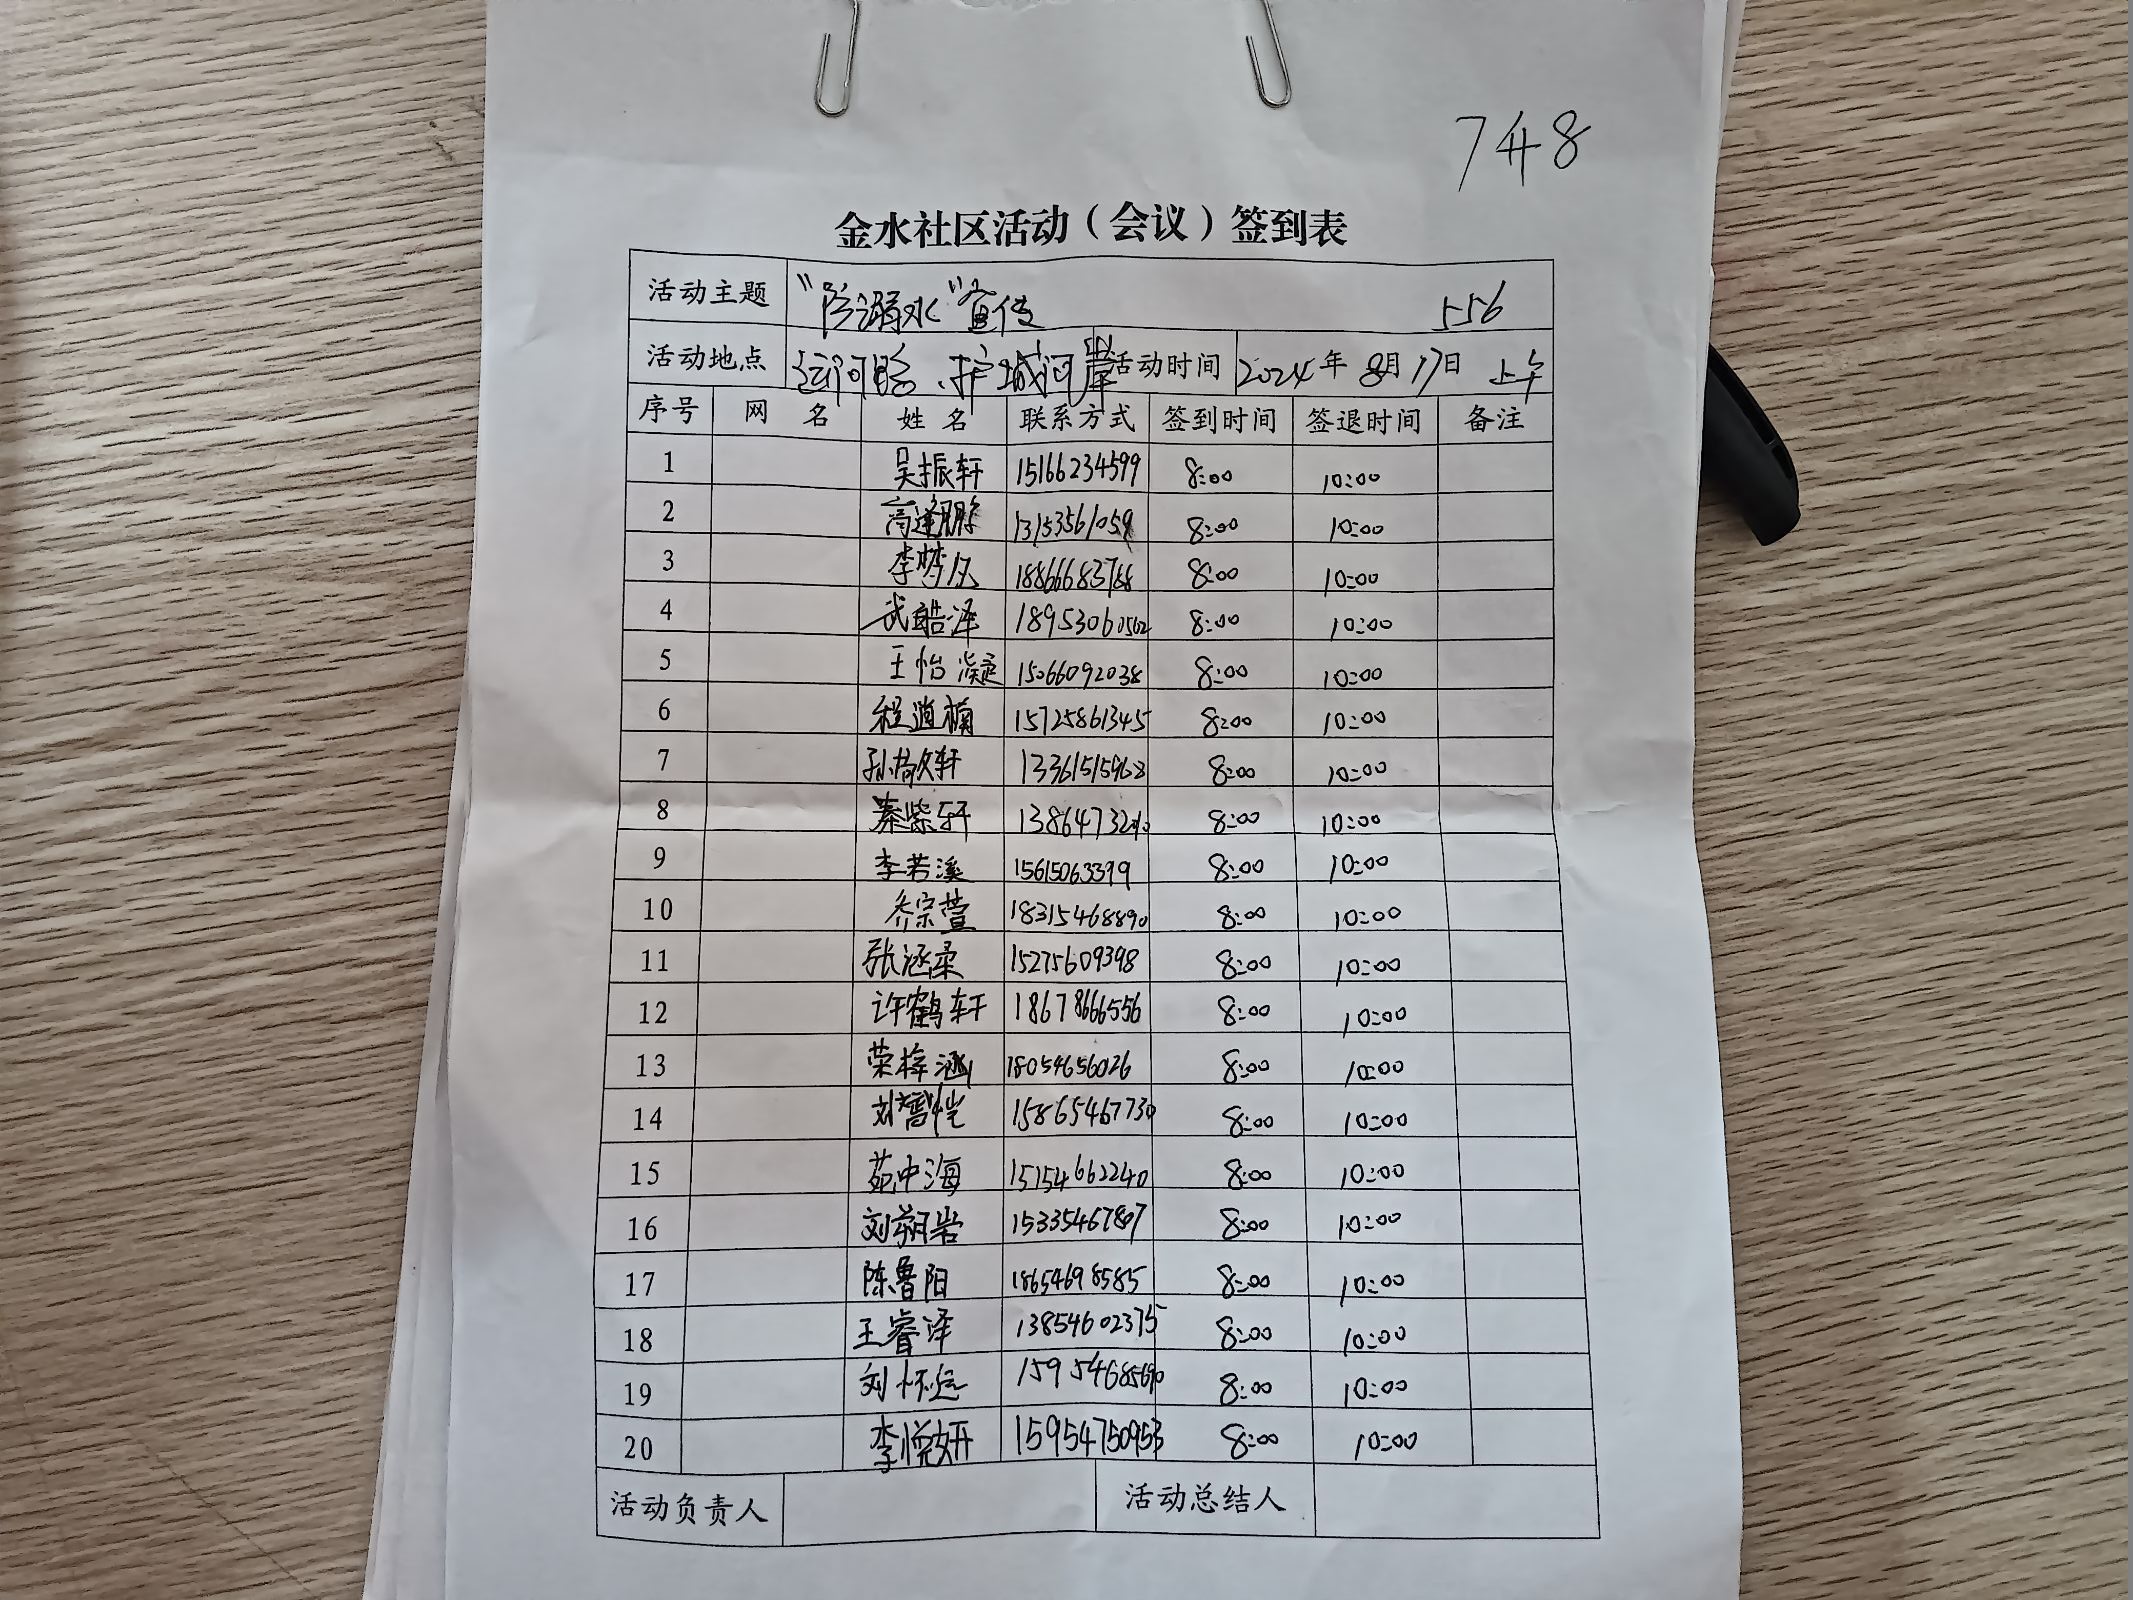 748
金水社区活动（会议）签到表
活动主题 “防溺水”宣传 556
活动地点 运河路、护城河岸 活动时间 2024年 8月17日 上午
序号 网 名 姓 名 联系方式 签到时间 签退时间 备注
1 吴振轩 15166234599 8:00 10:00
2 高逢鹏 13153561059 8:00 10:00
3 李梦凡 18866683768 8:00 10:00
4 武皓泽 18953060562 8:00 10:00
5 王怡凝 15066092038 8:00 10:00
6 程道楠 15725861345 8:00 10:00
7 孙敬轩 13361515963 8:00 10:00
8 秦紫轩 8:00 10:00
9 李若溪 15615063399 8:00 10:00
10 乔宗萱 18315468890 8:00 10:00
11 张涵柔 15275609398 8:00 10:00
12 许鹤轩 18678666556 8:00 10:00
13 荣梓涵 18054656026 8:00 10:00
14 刘 恺 15865467730 8:00 10:00
15 苑中海 15154662240 8:00 10:00
16 刘朔岩 15335467807 8:00 10:00
17 陈鲁阳 18654698585 8:00 10:00
18 王睿泽 13854602375 8:00 10:00
19 刘怀远 15954685690 8:00 10:00
20 李悦妍 15954750953 8:00 10:00
活动负责人 活动总结人